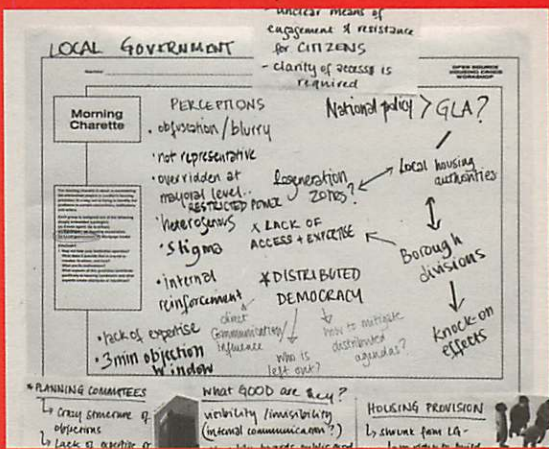 - unclear means of
engagement & resistance
for CITIZENS
- clarity of access is
required
LOCAL GOVERNMENT
OPEN SOURCE
HOUSING CRISIS
WORKSHOP
Morning
Charette
PERCEPTIONS
• obfuscation / blurry
• not representative
• overridden at
mayoral level..
RESTRICTED POWER
• heterogenous
• Stigma
• internal
reinforcement
• lack of expertise
• 3min objection
window
National policy > GLA?
Local housing
authorities
Regeneration
zones?
X LACK OF
ACCESS + EXPERTISE
Borough
divisions
Knock-on
effects
* DISTRIBUTED
DEMOCRACY
direct
communication/
influence
who is
left out?
how to mitigate
distributed
agendas?
* PLANNING COMMITTEES
↳ Crazy structure of
objections
↳ Lack of expertise or
What GOOD are they?
visibility / invisibility
(internal communication?)
HOUSING PROVISION
↳ shrunk from LG -